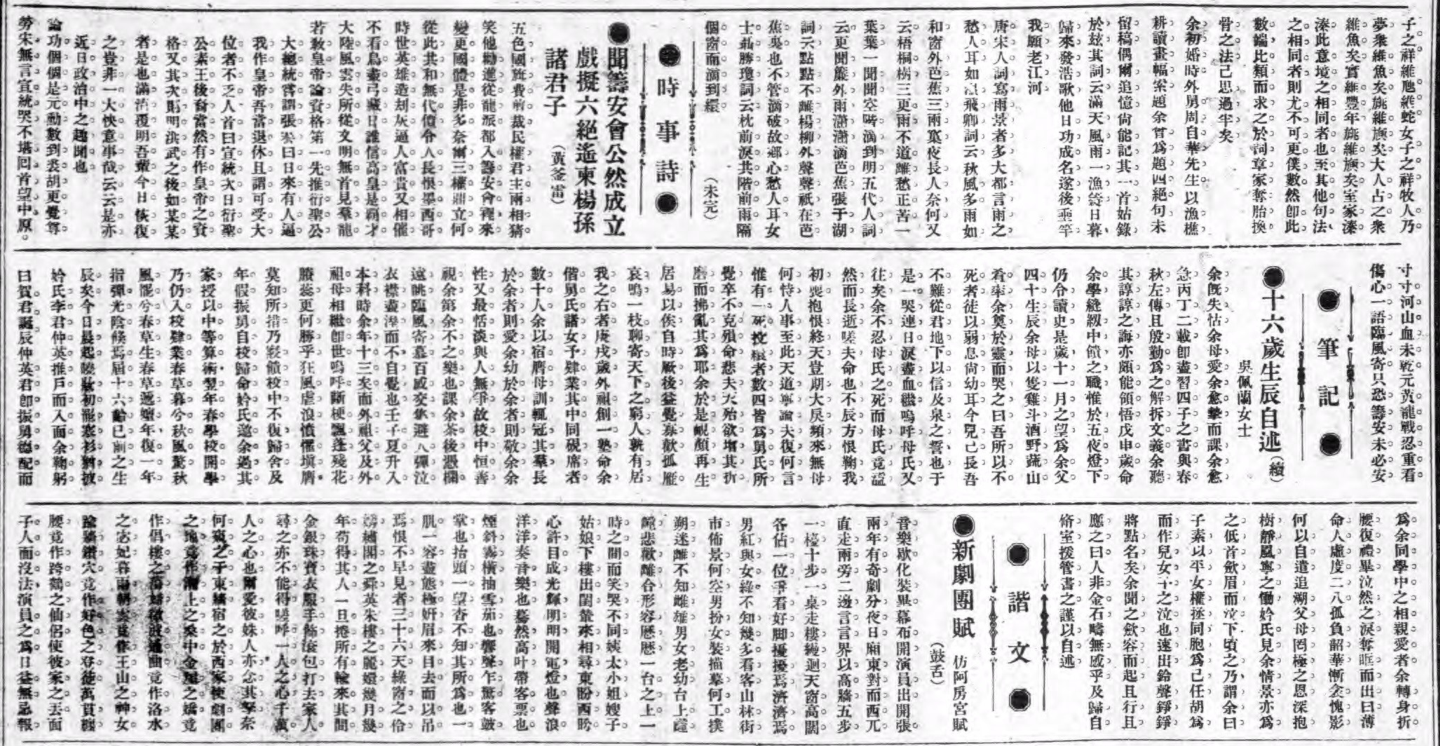 子之祥維虺維蛇女子之祥牧人乃
夢衆維魚矣旐維旟矣大人占之衆
維魚矣實維豐年旐維旟矣室家溱
溱此意境之相同者也至其他句法
之相同者則尤不可更僕數然卽此
數端比類而求之於詞章家奪胎換
骨之法已思過半矣
余初婚時外舅周自華先生以漁樵
耕讀畫幅索題余嘗為題四絕句未
留稿偶爾追憶尙能記其一首始錄
於玆其詞云滿天風雨一漁簑日暮
歸來發浩歌他日功成名遂後垂竿
我願老江河
唐宋人詞寫雨景者多大都言雨之
愁人耳如溫飛卿詞云秋風多雨如
和窗外芭蕉三兩窠夜長人奈何又
云梧桐樹三更雨不道離愁正苦一
葉葉一聞聞空階滴到明五代人詞
云更聞簾外雨瀟瀟滴芭蕉張于湖
詞云點點不離楊柳外聲聲祇在芭
蕉吳也不管滴破故鄉心愁人耳女
士聶勝瓊詞云枕前淚共階前雨隔
個窗前滴到綴
（未完）
●時事詩●
●聞籌安會公然成立
戲擬六絕遙柬楊孫
諸君子
（黃荃雷）
五色國旂費剪裁民權君主兩相猜
笑他勸進從龍派都入籌安會裡來
變更國體是非多奈爾三權鼎立何
從此共和無代價令人長恨墨西哥
時世英雄造刼灰逼人富貴又相催
不看鳥盡弓藏日誰信高皇是霸才
大陸風雲失所從文明無首見羣龍
若敎皇帝論資格第一先推衍聖公
大總統嘗謂張　曰日來有人逼
我作皇帝吾當退休且謂可受大
位者不乏人首曰宣統次曰衍聖
公素王後裔當然有作皇帝之資
格又其次則明洪武之後如某某
者是也滿淸覆明吾輩今日恢復
之豈非一大快意事哉云云是亦
近日政治中之趣聞也
論功個個是元勳數到裘胡更覺尊
勞宋無言宣統哭不堪回首望中原
寸寸河山血未乾元黃龍戰忍重看
傷心一語臨風寄只恐籌安未必安
●筆記●
●十六歲生辰自述（續）
吳佩蘭女士
余旣失怙余母愛余愈摯而課余愈
急丙丁二載卽盡習四子之書與春
秋左傳且殷勤為之解拆文義余聽
其諄諄之誨亦頗能領悟戊申歲命
余學縫紉中饋之職惟於五夜燈下
仍令讀史是歲十一月之望為余父
四十生辰余母以隻雞斗酒野蔬山
肴率余奠於靈而哭之曰吾所以不
死者徒以弱息尙幼耳今兒已長吾
不難從君地下以信及泉之誓也于
是一哭連日淚盡血繼嗚呼母氏又
往矣余不忍母氏之死而母氏竟溘
然而長逝嗟夫命也不辰方恨鞠我
初喪抱恨終天豈期大戾頻來無母
何恃人事至此天道寧論夫復何言
惟有一死投繯者數四皆為舅氏所
覺卒不克殞命悲夫天殆欲增其折
磨而拂亂其為耶余於是靦顏再生
居易以俟自時厥後益覺寡歡孤雁
哀鳴一枝聊寄天下之窮人孰有居
我之右者庚戌歲外祖創一塾命余
偕舅氏諸女予肄業其中同硯席者
數十人余以宿膺母訓輒冠其羣長
於余者則愛余幼於余者則敬余余
性又最恬淡與人無爭故校中恒善
視余第余不之樂也課余茶後憑欄
遠眺臨風寄慕百感交集避人彈泣
衣襟盡溼而不自覺也壬子夏升入
本科時余年十三矣而外祖父及外
祖母相繼卽世嗚呼斷梗飄蓬殘花
賸蕊更何勝乎狂風虐浪憤懼塡膺
莫知所措乃輟饋校中不復歸舍及
年假振勇自校歸命妗氏邀余過其
家授以中等算術翌年春學校開學
乃仍入校肄業春草暮兮秋風驚秋
風罷兮春草生春草遞嬗年復一年
指彈光陰倏焉屆十六齡已前之生
辰矣今日晨起睦駿初罷裳衫猶披
妗氏李君仲英推戶而入面余鞠躬
曰賀君誕辰仲英君卽振勇德配而
為余同學中之相親愛者余轉身折
腰復禮畢泫然之淚奪眶而出曰薄
命人虛度二八孤負韶華慚余愧影
何以自遣追溯父母罔極之恩深抱
樹靜風寧之慟妗氏見余情景亦為
之低首歛眉而泣下頃之乃謂余曰
子素以平女權拯同胞為己任胡為
而作兒女子之泣也遂出鈴聲錚錚
將點名矣余聞之歛容而起且行且
應之曰人非金石疇無感乎及歸自
脩室援管書之謹以自述
●諧文●
●新劇團賦　仿阿房宮賦
（鼓舌）
音樂歇化裝異幕布開演員出開張
兩年有奇劇分夜日廂東對而西兀
直走兩旁二邊言言界以高牆五步
一棧十步一桌走樓縵迴天窗高闊
各佔一位爭看好脚擾擾焉濟濟焉
男紅與女綠不知幾多看客山林街
市佈景何空男扮女裝描摹何工撲
朔迷離不知雌雄男女老幼台上譴
謔悲歡離合形容懕懕一台之上一
時之間而笑哭不同姨太小姐嫂子
姑娘下樓出閨輦來相尋東盼西盻
心許目成光輝明明開電燈也聲浪
洋洋奏音樂也驀然高叶帶客票也
煙斜霧橫抽雪茄也聲聲乍驚客鼓
掌也抬頭一望杳不知其所為也一
肌一容盡態極妍眉來目去而以吊
焉恨不早見者三十六天綠窗之伶
繡閣之舜英朱樓之麗嬛幾月幾
年苟得其人一旦捲所有輸來其間
金銀珠寶衣服手飾滾包打去家人
尋之亦不能得嗟呼一人之心千萬
人之心也爾愛彼妹人亦念其孥奈
何竇之子東牆宿之於西家使劇團
之地竟作濮上之桑中金屋之嬌竟
作倡樓之蕩婦敬波遺曲竟作洛水
之宓妃暮雨朝雲竟作王山之神女
踰牆鑽穴竟作好色之登徒萬貫纏
腰竟作跨鶴之仙侶使彼家之去面
子人而沒法演員之為日益無忌報